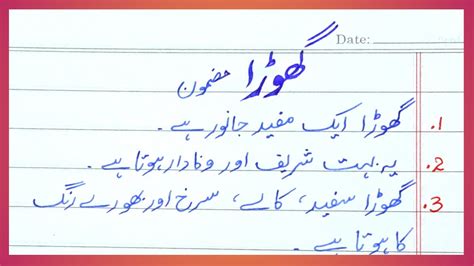 Date:
گھوڑا مضمون
1. گھوڑا ایک مفید جانور ہے۔
2. یہ بہت شریف اور وفادار ہوتا ہے۔
3. گھوڑا سفید، کالے، سرخ اور بھورے رنگ
کا ہوتا ہے۔